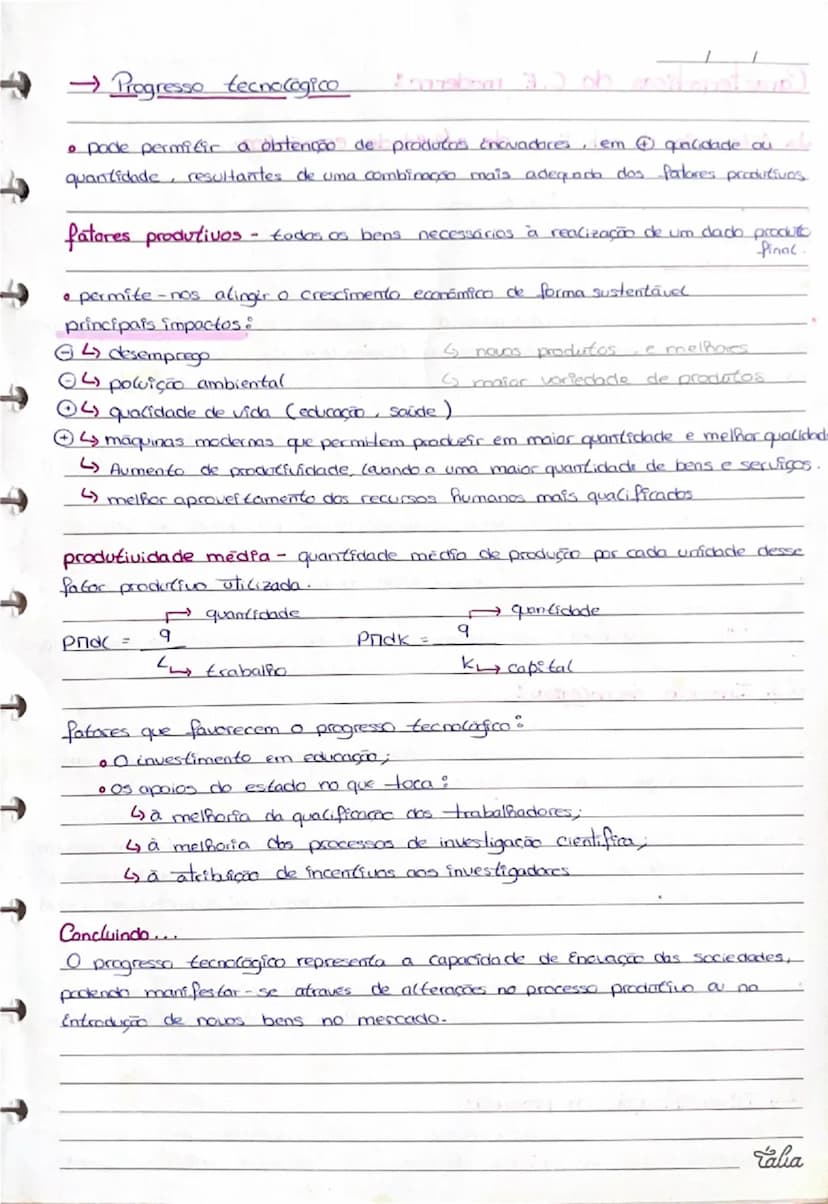 → Progresso tecnológico
• pode permitir a obtenção de produtos inovadores, em ⊕ qualidade ou
quantidade, resultantes de uma combinação mais adequada dos fatores produtivos
fatores produtivos - todos os bens necessários à realização de um dado produto
final.
• permite-nos atingir o crescimento económico de forma sustentável
principais impactos:
⊖ ↳ desemprego ↳ novos produtos, e melhores
⊖ ↳ poluição ambiental ↳ maior variedade de produtos
⊕ ↳ qualidade de vida (educação, saúde)
⊕ ↳ máquinas modernas que permitem produzir em maior quantidade e melhor qualidade
↳ Aumento de produtividade, levando a uma maior quantidade de bens e serviços.
↳ melhor aproveitamento dos recursos humanos mais qualificados
produtividade média - quantidade média de produção por cada unidade desse
fator produtivo utilizada.
↱ quantidade ↱ qantidade
PMdL = q PMdK = q
L ↳ trabalho K ↳ capital
fatores que favorecem o progresso tecnológico:
• O investimento em educação;
• Os apoios do estado no que toca:
↳ à melhoria da qualificação dos trabalhadores;
↳ à melhoria dos processos de investigação científica;
↳ à atribuição de incentivos aos investigadores
Concluindo...
O progresso tecnológico representa a capacidade de inovação das sociedades,
podendo manifestar-se através de alterações no processo produtivo ou na
introdução de novos bens no mercado.
Tália